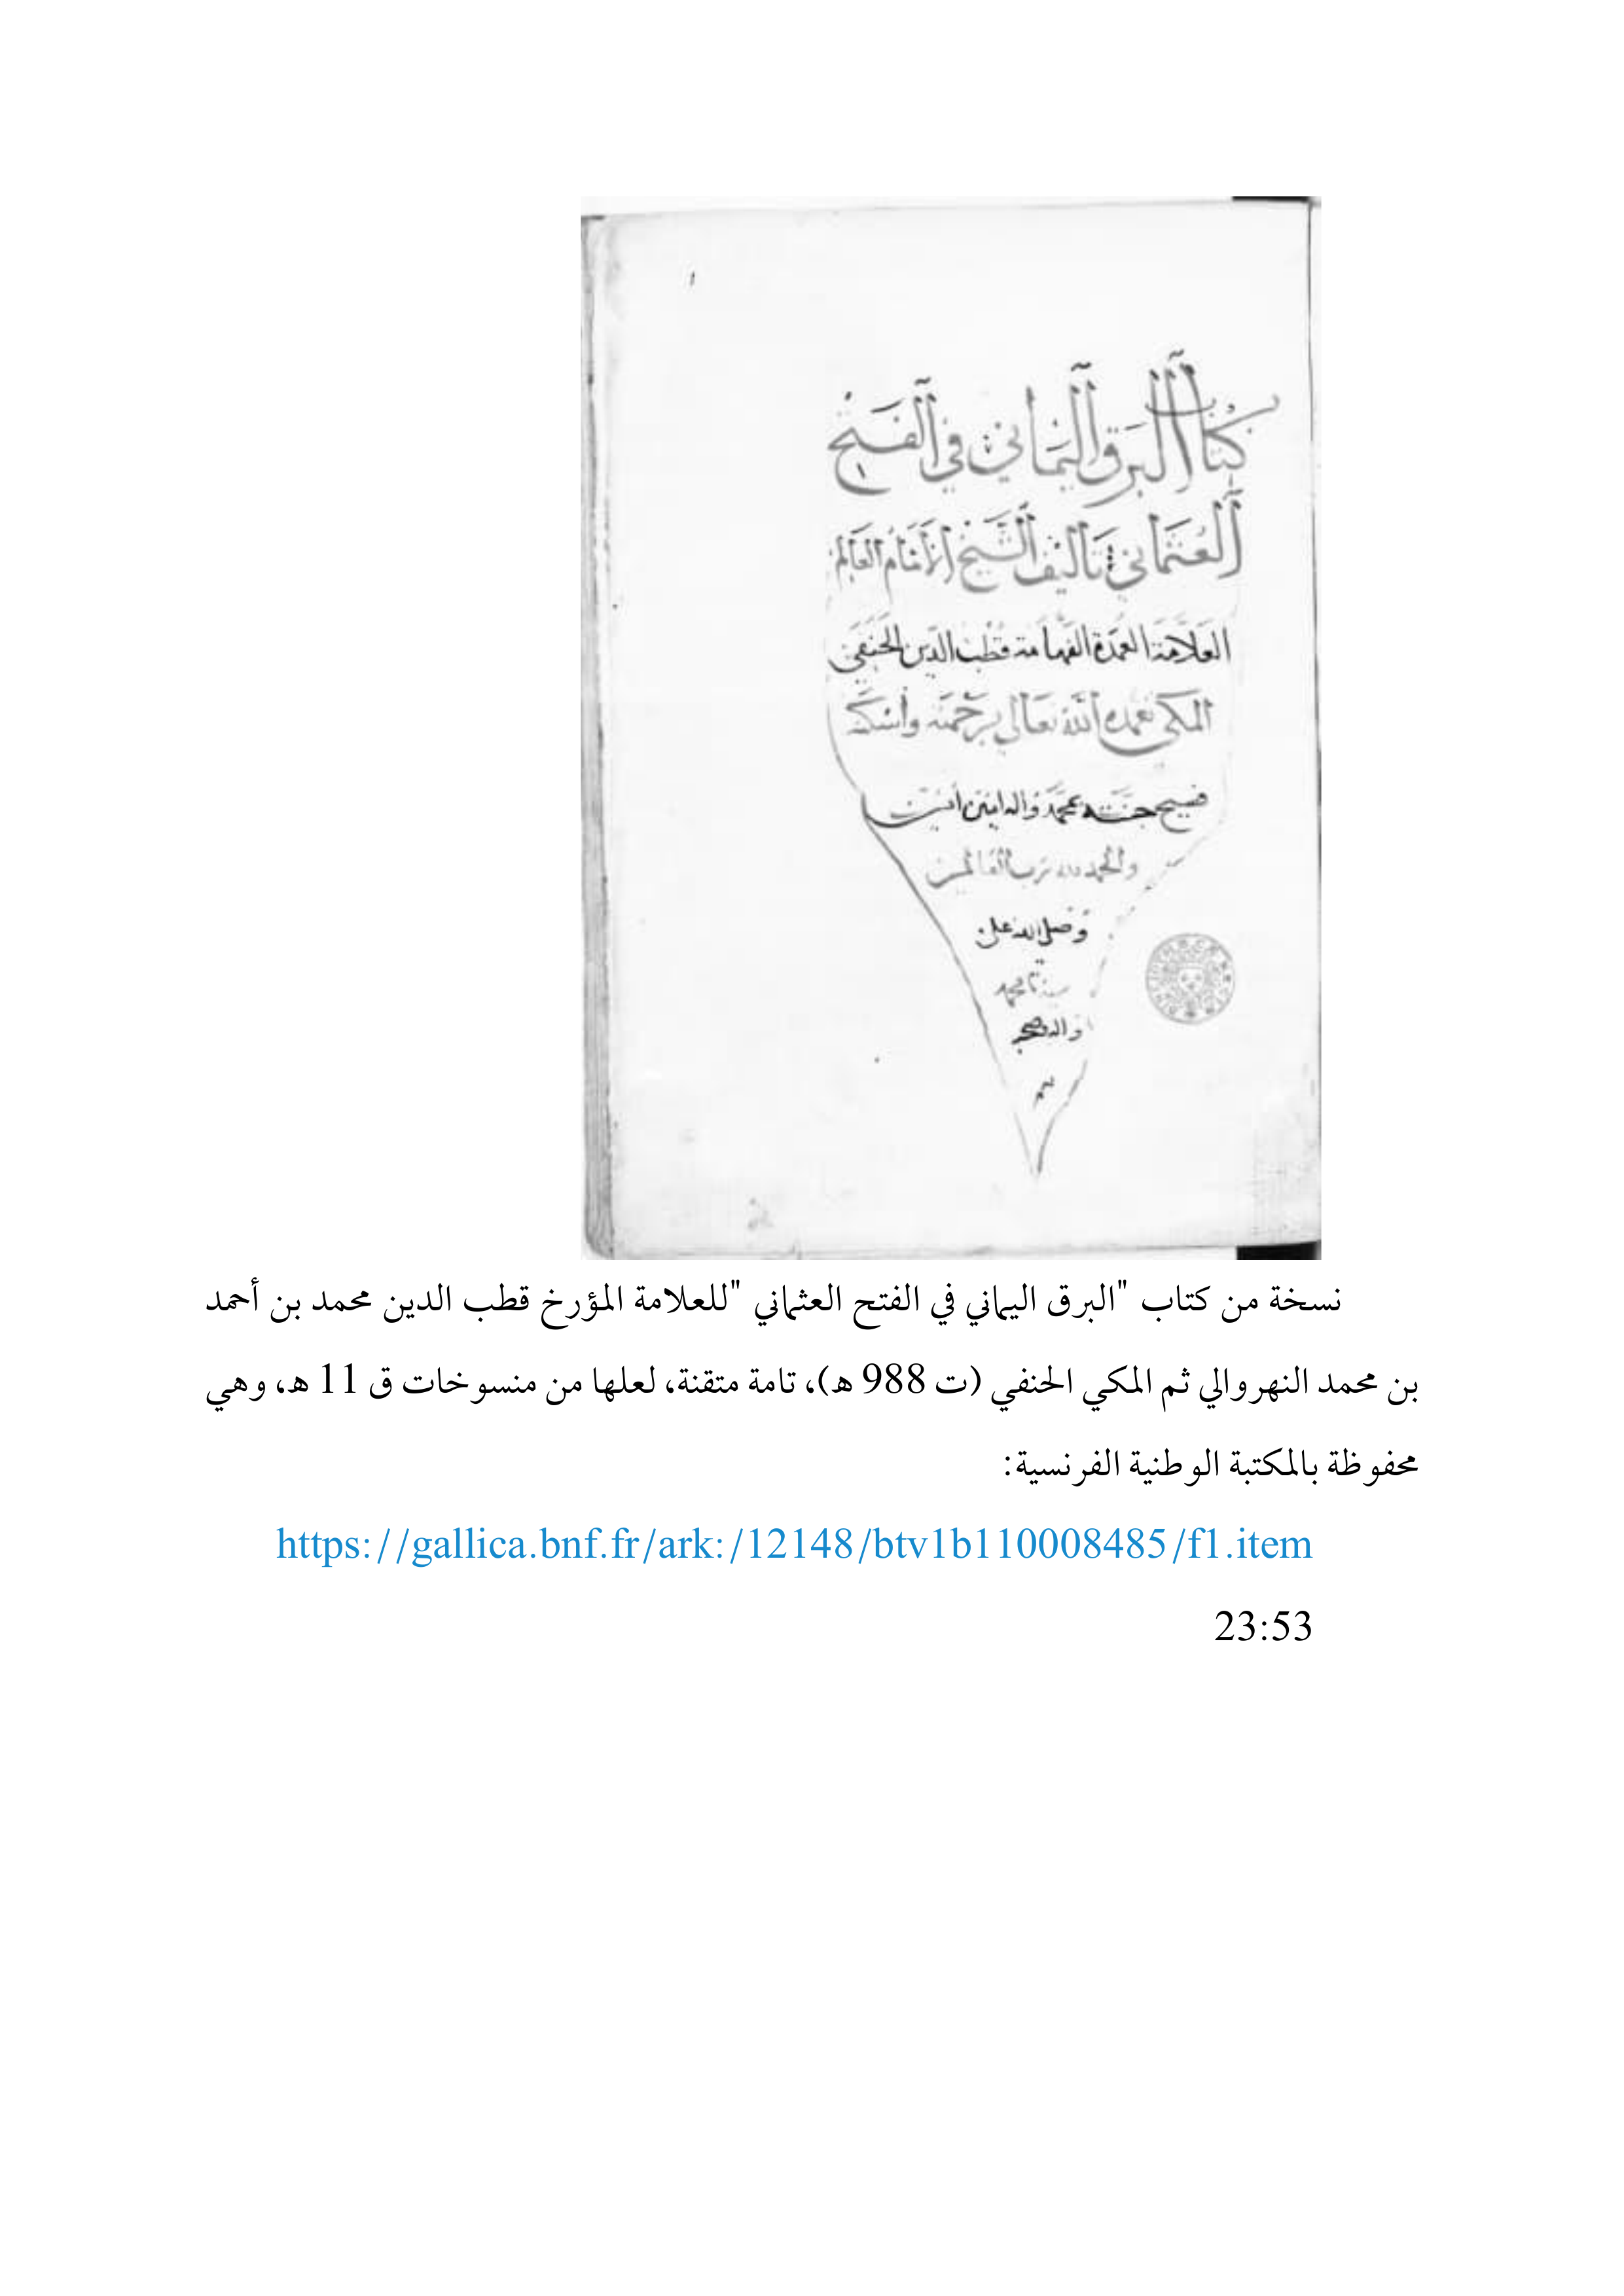 ١
كتاب البرق اليماني في الفتح
العثماني تاليف الشيخ الامام العالم
العلامة العمدة الفهامة قطب الدين الحنفي
المكي تغمده الله تعالى برحمته واسكنه
فسيح جنته بمحمد واله امين امين
والحمد لله رب العالمين
وصلى الله على
سيدنا محمد
واله وصحبه
نسخة من كتاب "البرق اليماني في الفتح العثماني "للعلامة المؤرخ قطب الدين محمد بن أحمد
بن محمد النهروالي ثم المكي الحنفي (ت 988 هـ)، تامة متقنة، لعلها من منسوخات ق 11 هـ، وهي
محفوظة بالمكتبة الوطنية الفرنسية:
https://gallica.bnf.fr/ark:/12148/btv1b110008485/f1.item
23:53